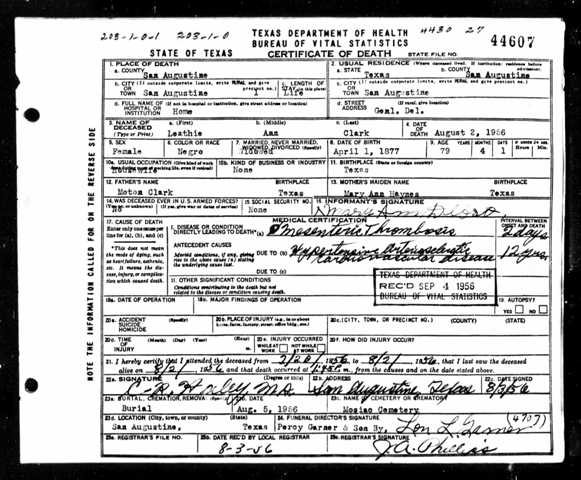 203-1-0-1 203-1-0
TEXAS DEPARTMENT OF HEALTH
#430 27
BUREAU OF VITAL STATISTICS
STATE OF TEXAS
CERTIFICATE OF DEATH
STATE FILE NO.
44607
NOTE THE INFORMATION CALLED FOR ON THE REVERSE SIDE
1. PLACE OF DEATH
a. COUNTY
San Augustine
2. USUAL RESIDENCE (Where deceased lived. If institution: residence before
a. STATE
Texas
b. COUNTY
San Augustine
b. CITY (If outside corporate limits, write RURAL and give
OR
TOWN
San Augustine
c. LENGTH OF
STAY (in this place)
Life
c. CITY (If outside corporate limits, write RURAL and give
OR
TOWN
San Augustine
d. FULL NAME OF (If not in hospital or institution, give street address or location)
HOSPITAL OR
INSTITUTION
Home
d. STREET
ADDRESS
(If rural, give location)
Genl. Del.
3. NAME OF
DECEASED
(Type or Print)
a. (First)
Leathie
b. (Middle)
Ann
c. (Last)
Clark
4. DATE
OF
DEATH
August 2, 1956
5. SEX
Female
6. COLOR OR RACE
Negro
7. MARRIED, NEVER MARRIED,
WIDOWED, DIVORCED (Specify)
Widowed
8. DATE OF BIRTH
April 1, 1877
9. AGE
79
4
1
10a. USUAL OCCUPATION (Give kind of work
Housewife
10b. KIND OF BUSINESS OR INDUSTRY
None
11. BIRTHPLACE (State or foreign country)
Texas
12. FATHER'S NAME
Moton Clark
Texas
13. MOTHER'S MAIDEN NAME
Mary Ann Haynes
Texas
14. WAS DECEASED EVER IN U.S. ARMED FORCES?
No
15. SOCIAL SECURITY NO.
None
16. INFORMANT'S SIGNATURE
Mary Ann
17. CAUSE OF DEATH
Enter only one cause per
line for (a), (b), and (c)
MEDICAL CERTIFICATION
INTERVAL BETWEEN
ONSET AND DEATH
I. DISEASE OR CONDITION
DIRECTLY LEADING TO DEATH*(a)
Mesenteric Thrombosis
2 days
*This does not mean
the mode of dying, such
as heart failure, asthenia,
etc. It means the dis-
ease, injury, or complica-
tion which caused death.
ANTECEDENT CAUSES
Morbid conditions, if any, giving
rise to the above cause (a) stating
the underlying cause last.
DUE TO (b)
Hypertensive Arteriosclerotic
Cardiovascular disease
12 yrs.
DUE TO (c)
II. OTHER SIGNIFICANT CONDITIONS
Conditions contributing to the death but not
related to the disease or condition causing death.
TEXAS DEPARTMENT OF HEALTH
REC'D SEP 4 1956
BUREAU OF VITAL STATISTICS
18a. DATE OF OPERATION
18b. MAJOR FINDINGS OF OPERATION
19. AUTOPSY?
YES NO
20a. ACCIDENT
SUICIDE
HOMICIDE
(Specify)
20b. PLACE OF INJURY (e.g., in or about
home, farm, factory, street, office bldg., etc.)
20c. (CITY, TOWN, OR PRECINCT NO.)
(COUNTY)
(STATE)
20d. TIME
OF
INJURY
(Month) (Day) (Year) (Hour)
20e. INJURY OCCURRED
WHILE AT
WORK
NOT WHILE
AT WORK
20f. HOW DID INJURY OCCUR?
21. I hereby certify that I attended the deceased from 2/20/1956 to 8/2/1956, that I last saw the deceased
alive on 8/2/1956 and that death occurred at m., from the causes and on the date stated above.
22a. SIGNATURE
(Degree or title)
M.D.
22b. ADDRESS
San Augustine Texas
22c. DATE SIGNED
8/3/56
23a. BURIAL, CREMATION, REMOVAL (Specify)
Burial
23b. DATE
Aug. 5, 1956
23c. NAME OF CEMETERY OR CREMATORY
Mosiac Cemetery
23d. LOCATION (City, town, or county) (State)
San Augustine, Texas
24. FUNERAL DIRECTOR'S SIGNATURE
Percy Garner & Son By, Lon L. Garner
(4707)
25a. REGISTRAR'S FILE NO.
25b. DATE REC'D BY LOCAL REGISTRAR
8-3-56
25c. REGISTRAR'S SIGNATURE
J.A. Phillips